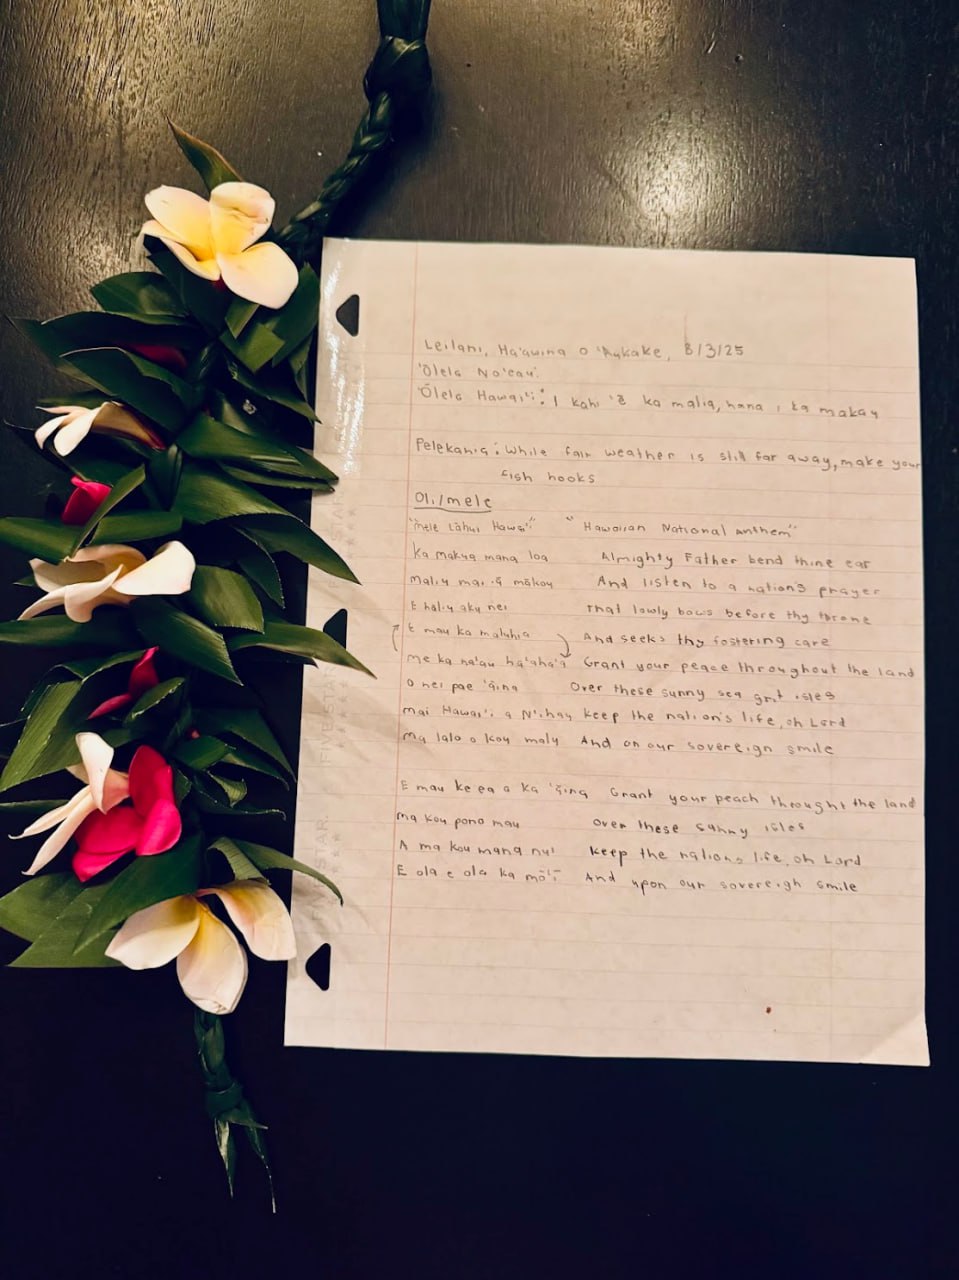 Leilani, Ha'awina o 'Aukake, 8/3/25
'Ōlelo No'eau:
'Ōlelo Hawai'i: I kahi 'ē ka malia, hana i ka makau
Pelekania: While fair weather is still far away, make your
fish hooks
Oli/mele
"Mele Lāhui Hawai'i" "Hawaiian National anthem"
Ka makua mana loa Almighty Father bend thine ear
Maliu mai iā mākou And listen to a nation's prayer
E hāliu aku nei That lowly bows before thy throne
E mau ka maluhia And seeks thy fostering care
me ka na'au ha'aha'a Grant your peace throughout the land
O nei pae 'āina Over these sunny sea isles
mai Hawai'i a Ni'ihau keep the nation's life, oh Lord
Ma lalo o kou malu And on our sovereign smile
E mau ke ea o ka 'āina Grant your peach throught the land
Ma kou pono mau Over these sunny isles
A ma kou mana nui keep the nations life, oh Lord
E ola e ola ka mō'ī And upon our sovereigh smile
FIVE STAR